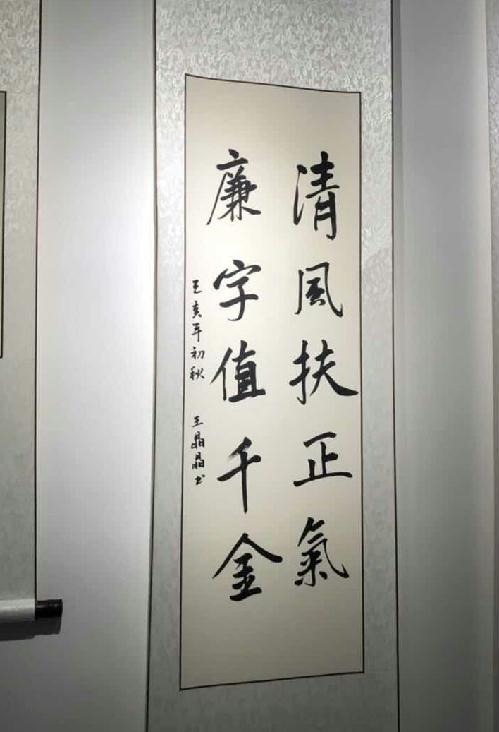 清風扶正氣
廉字值千金
亥年初秋 王晶晶书